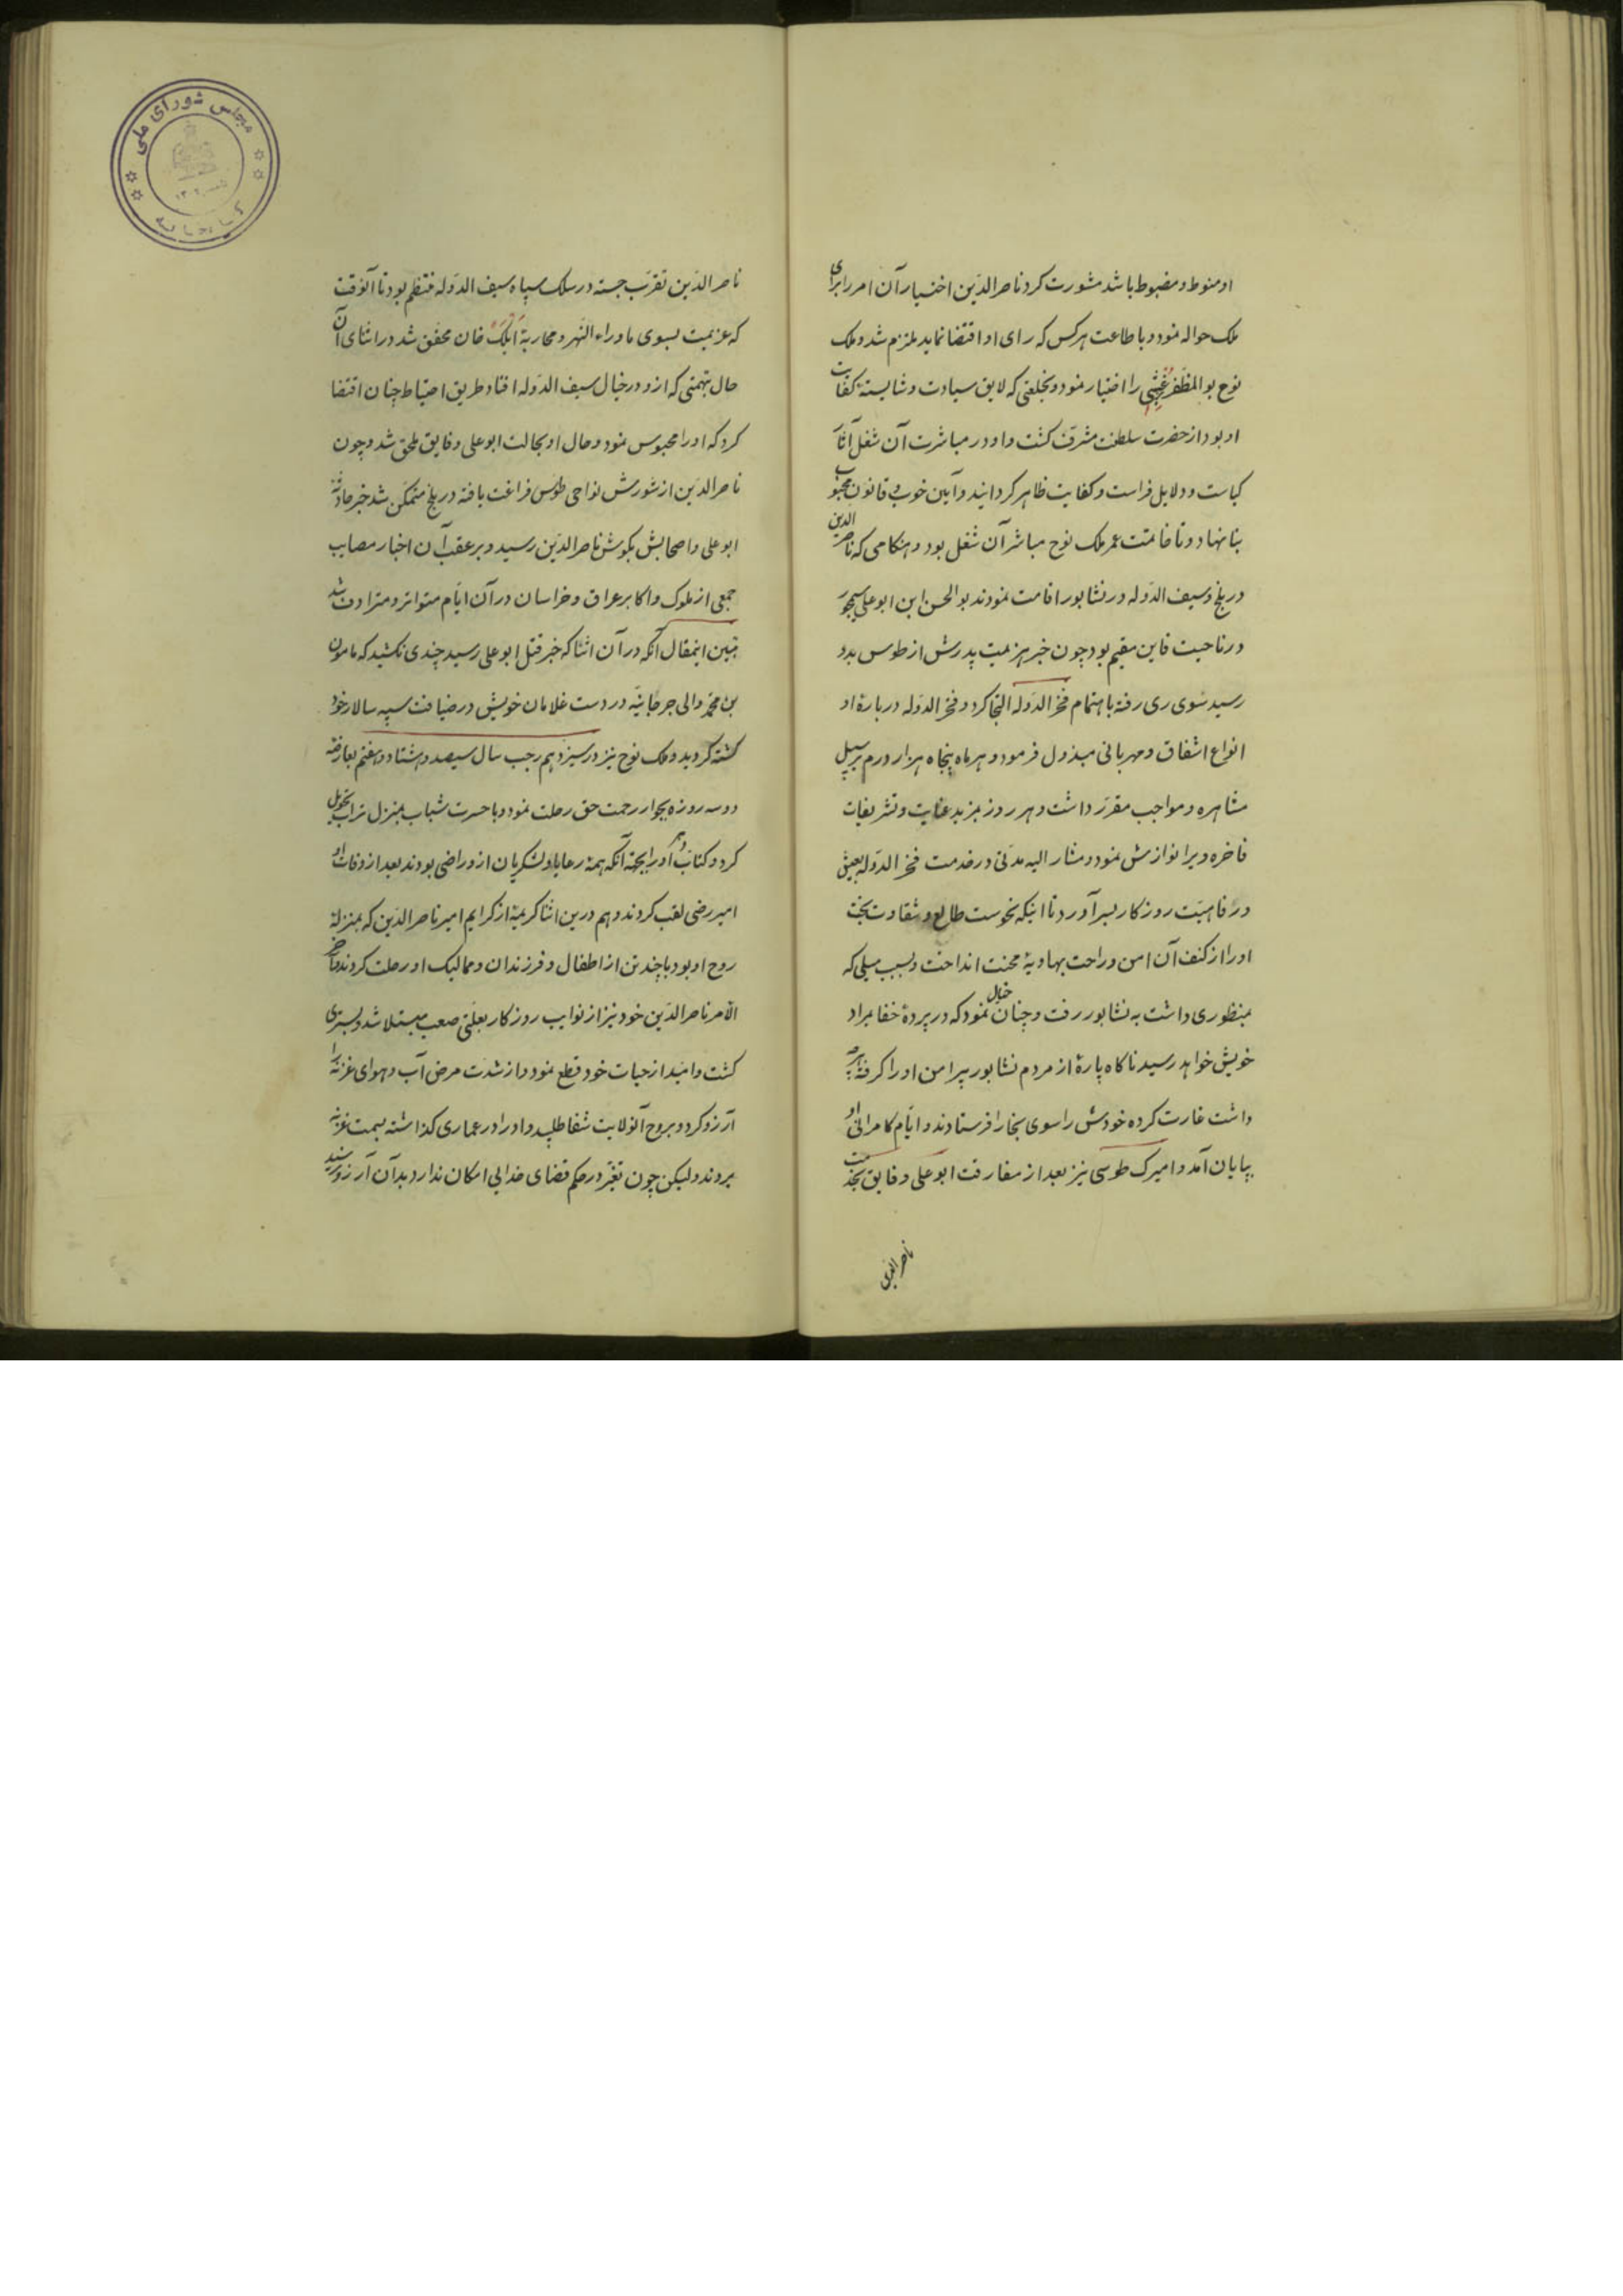 او منوط و مضبوط باشد مشورت کرد ناصر الدّین اختیار آن امر را برای
ملک حواله نمود و باطاعت هر کس که رای او اقتضا نماید ملتزم شد و ملک
نوح بو المظفّر را اختیار نمود و بخلعتی که لایق سیادت و شایسته کفات
او بود از حضرت سلطنت مشرّف کشت و او در مباشرت آن شغل آثار
کیاست و دلایل فراست و کفایت ظاهر کردانید و آیین خوب و قانون محبوب
بنا نهاد و تا خاتمت عمر ملک نوح مباشر آن شغل بود و هنکامی که ناصر الدین
در بلخ و سیف الدّوله در نشابور اقامت نمودند بو الحسن ابن ابو علی سیمجور
در ناحیت قاین مقیم بود چون خبر هزیمت پدرش از طوس بدو
رسید سوی ری رفته باهتمام فخر الدّوله التجا کرد و فخر الدّوله در بارۀ او
انواع اشفاق و مهربانی مبذول فرمود و هر ماه پنجاه هزار درم بر سبیل
مشاهره و مواجب مقرّر داشت و هر روز بمزید عنایت و تشریفات
فاخره ویرا نوازش نمود و مشار الیه مدتی در خدمت فخر الدّوله بعیش
و رفاهیّت روزکار بسر آورد تا اینکه نحوست طالع و شقاوت بخت
او را از کنف آن امن و راحت بهاویۀ محنت انداخت و بسبب میلی که
بمنظوری داشت به نشابور رفت و چنان خیال نمود که در پردۀ خفا بمراد
خویش خواهد رسید ناکاه پارۀ از مردم نشابور پیرامن او را کرفته هر چه
داشت غارت کرده خودش را سوی بخارا فرستادند و ایّام کامرانی او
بپایان آمد و امیرک طوسی نیز بعد از مفارقت ابو علی و فایق بخدمت
ناصر الدین
ناصر الدّین تقرّب جسته در سلک سپاه سیف الدّوله منتظم بود تا آنوقت
که عزیمت بسوی ماوراء النّهر و محاربۀ ایلک خان محقّق شد در اثنای آن
حال بتهمتی که ازو در خیال سیف الدّوله افتاد طریق احتیاط چنان اقتضا
کرد که او را محبوس نمود و حال او بحالت ابو علی و فایق ملحق شد و چون
ناصر الدّین از شورش نواحی طوس فراغت یافته در بلخ متمکّن شد خبر حادثۀ
ابو علی و اصحابش بکوش ناصر الدّین رسید و بر عقب آن اخبار مصایب
جمعی از ملوک و اکابر عراق و خراسان در آن ایّام متواتر و مترادف شد
تبیین اینمقال آنکه در آن اثنا که خبر قتل ابو علی رسید چندی نکشید که مامون
بن محمّد والی جرجانیّه در دست غلامان خویش در ضیافت سپه سالار خود
کشته کردید و ملک نوح نیز در سیزدهم رجب سال سیصد و هشتاد و هفتم بعارضۀ
دو سه روزه بجوار رحمت حق رحلت نمود و با حسرت شباب بمنزل تراب تحویل
کرد و کتاب او را بجهة آنکه همۀ رعایا و لشکریان ازو راضی بودند بعد از وفات او
امیر رضی لقب کردند و هم درین اثنا کریمۀ از کرایم امیر ناصر الدّین که بمنزلۀ
روح او بود با چند تن از اطفال و فرزندان و ممالیک او رحلت کردند و آخر
الأمر ناصر الدّین خود نیز از نوایب روزکار بعلّتی صعب مبتلا شد و بستری
کشت و امید از حیات خود قطع نمود و از شدّت مرض آب و هوای غزنه را
آرزو کرد و بروح آنولایت شفا طلبید و او را در عماری کذاشته بسمت غزنه
بردند و لیکن چون تغیّر در حکم قضای خدایی امکان ندارد بدآن آرزو نرسید
مجلس شورای ملی
کتابخانه